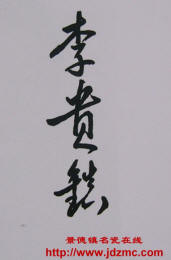 李貴鎧
景德镇名瓷在线
http://www.jdzmc.com